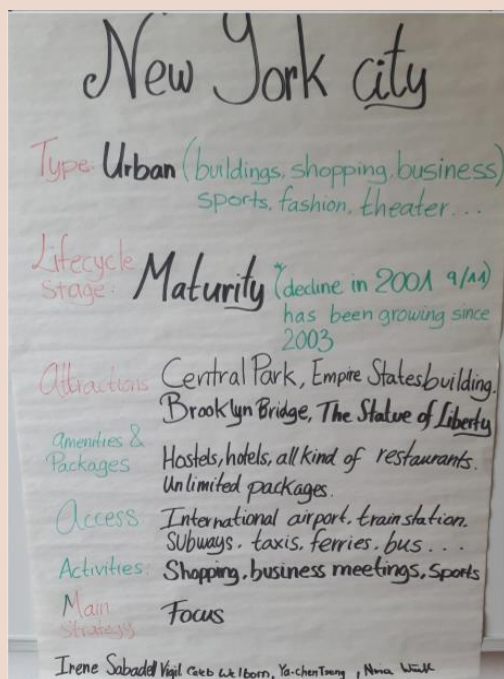 New York city
Type: Urban (buildings, shopping, business)
sports, fashion, theater...
Lifecycle
Stage: Maturity *(decline in 2001 9/11)
has been growing since
2003
Attractions Central Park, Empire Statesbuilding.
Brooklyn Bridge, The Statue of Liberty
amenities &
Packages Hostels, hotels, all kind of restaurants.
Unlimited packages.
Access International airport, train station.
Subways, taxis, ferries, bus...
Activities: Shopping, business meetings, sports
Main
Strategy Focus
Irene Sabadell Vigil, Caleb Welborn, Ya-chen Tseng, Nina